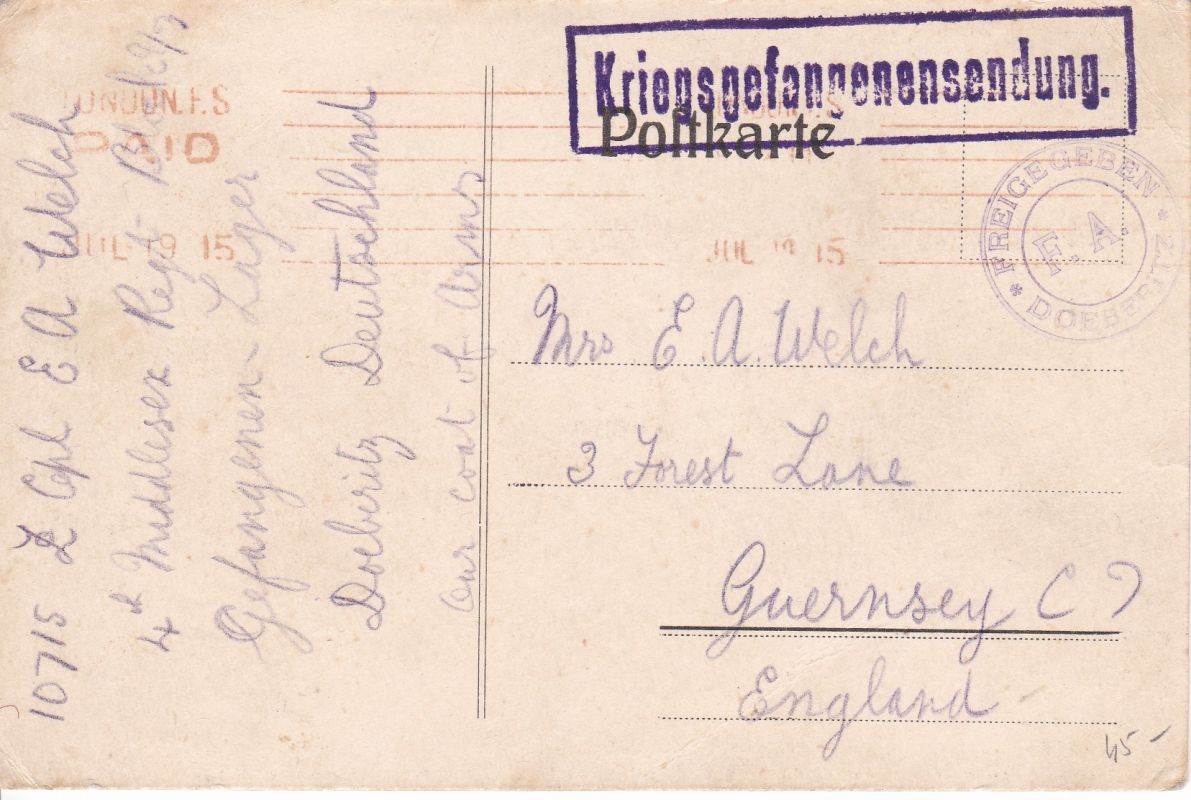 Kriegsgefangenensendung.
Postkarte
FREIGEGEBEN * DOEBERITZ *
F. A.
LONDON. F.S
PAID
JUL 19 15
JUL 19 15
10715 L Cpl E A Welch
4th Middlesex Regt
Gefangenen-Lager
Doeberitz Deutschland
our coat of Arms
Mrs E. A. Welch
3 Forest Lane
Guernsey C I
England
45 -